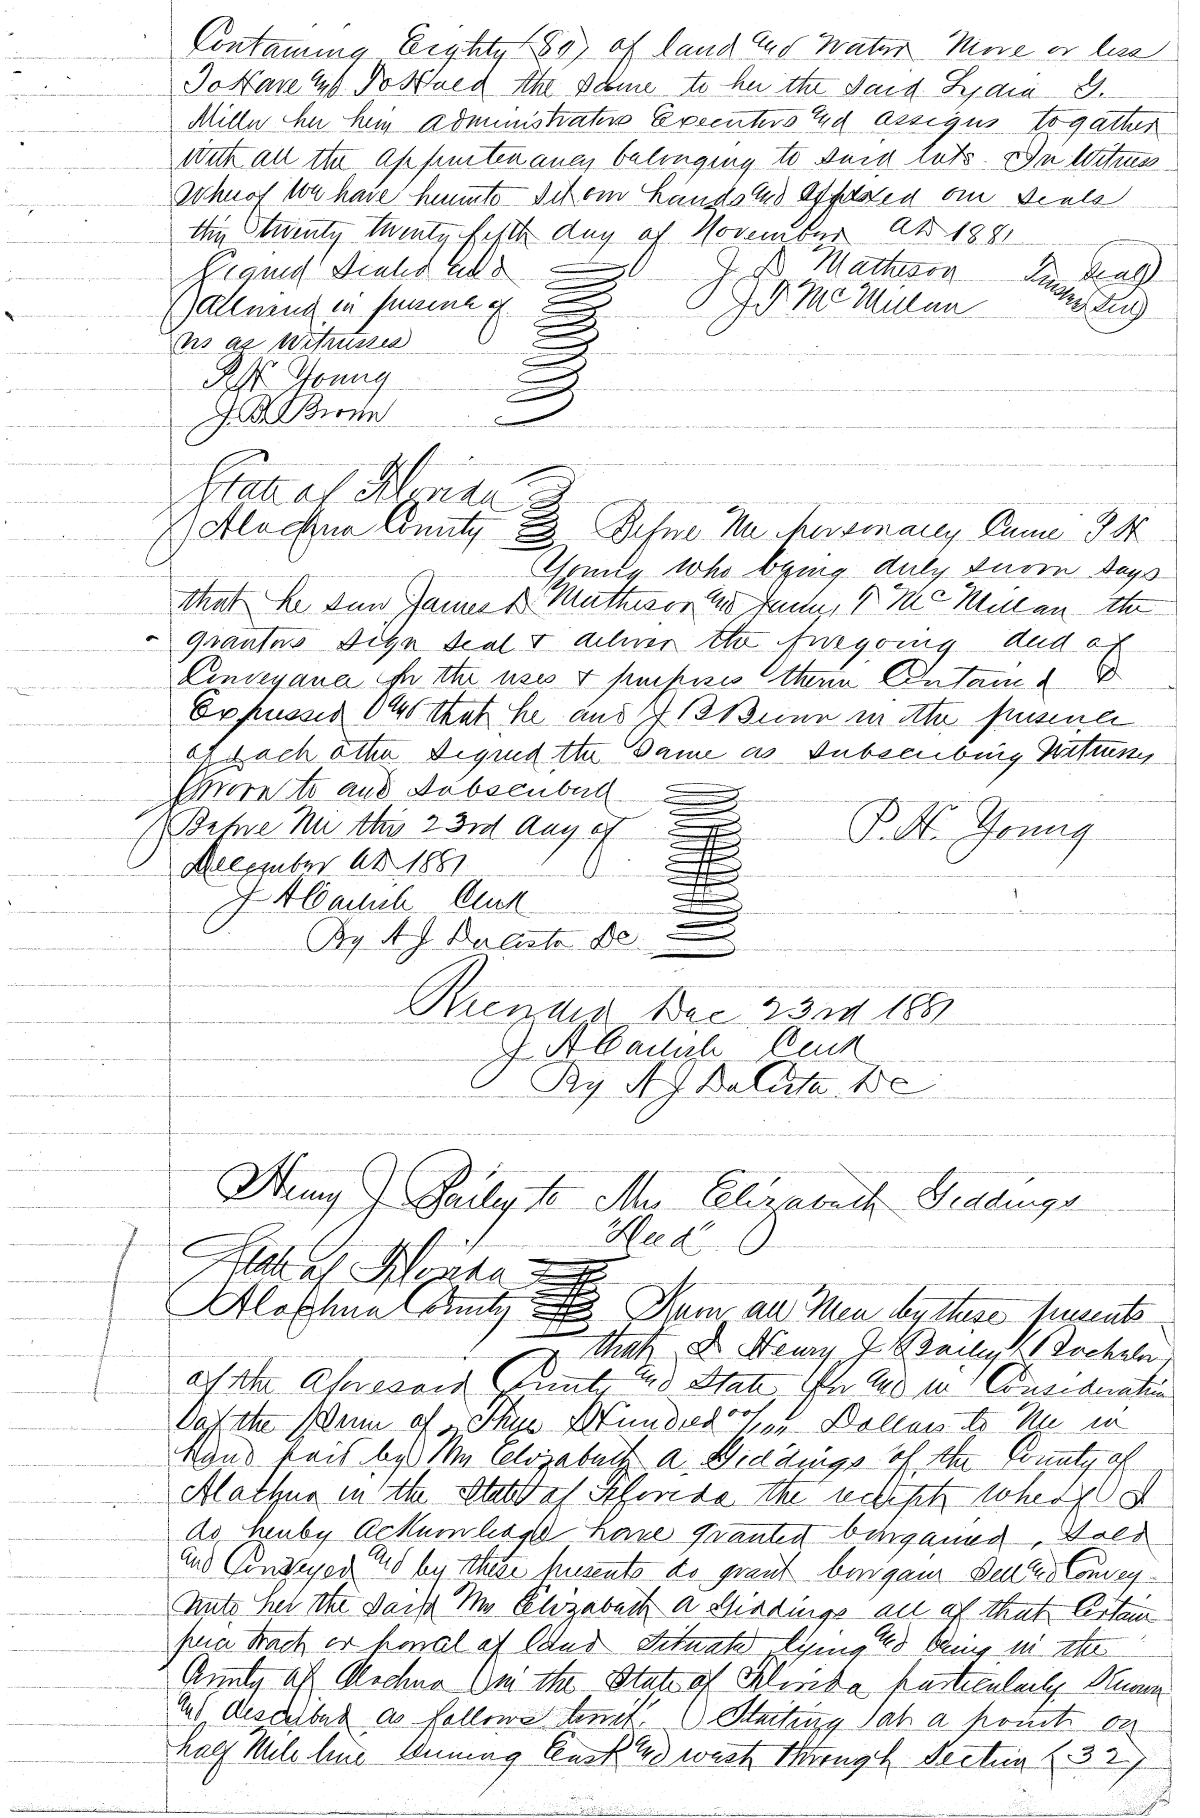 Containing Eighty (80) of land and water more or less
To Have and To Hold the same to her the said Lydia G.
Miller her heirs administrators Executors and assigns togather
with all the appurtenances belonging to said lots. In Witness
whereof we have hereunto set our hands and affixed our seals
this twenty twenty fifth day of November AD 1881
Signed Sealed and J D Matheson Seal
delivered in presence of J T McMillan Seal
us as witnesses
P. H. Young
J. B. Brown
State of Florida
Alachua County Before Me personally Came P H
Young who being duly sworn says
that he saw James D Matheson and T McMillan the
grantors sign seal & deliver the foregoing deed of
Conveyance for the uses & purposes therin Contained &
Expressed and that he and J B Brown in the presence
of each other signed the same as subscribing Witnesses
Sworn to and Subscribed
Before Me this 23rd day of P. H. Young
December AD 1881
J A Carlisle Clerk
By A J DaCosta DC
Recorded Dec 23rd 1881
J A Carlisle Clerk
By A J DaCosta DC
Henry J Bailey to Mrs Elizabath Giddings
"Deed"
State of Florida
Alachua County Know all Men by these presents
that I Henry J Bailey (Bachelor)
of the aforesaid County and State for and in Consideration
of the Sum of Three Hundred 00/100 Dollars to Me in
hand paid by Mrs Elizabath A Giddings of the County of
Alachua in the State of Florida the receipt whereof I
do hereby acknowledge have granted bargained, sold
and Conveyed and by these presents do grant bargain Sell and Convey
unto her the said Mrs Elizabath A Giddings all of that Certain
peice tract or parcel of land situate lying and being in the
County of Alachua in the State of Florida particularly Known
and described as follows towit: Starting at a point on
half Mile line running East and west through Section (32)